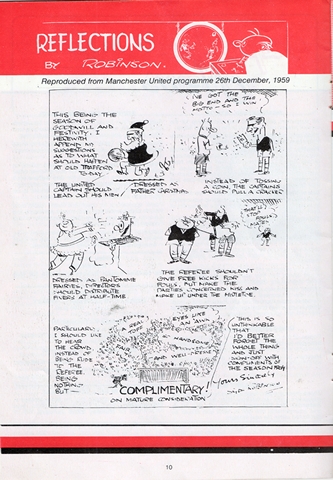 REFLECTIONS
BY ROBINSON.
Reproduced from Manchester United programme 26th December, 1959
THIS BEING THE
SEASON OF
GOODWILL AND
FESTIVITY. I
HEREWITH
APPEND MY
SUGGESTIONS
AS TO WHAT
SHOULD HAPPEN
AT OLD TRAFFORD
TODAY.
I'VE GOT THE
BIG END AND THE
MOTTO - SO I WIN
THE UNITED
CAPTAIN SHOULD
LEAD OUT HIS MEN
DRESSED AS
FATHER CHRISTMAS.
INSTEAD OF TOSSING
A COIN, THE CAPTAINS
SHOULD PULL A CRACKER
DRESSED AS PANTOMIME
FAIRIES, DIRECTORS
SHOULD DISTRIBUTE
FIVERS AT HALF-TIME
THE REFEREE SHOULDN'T
GIVE FREE KICKS FOR
FOULS, BUT MAKE THE
PARTIES CONCERNED KISS AND
MAKE UP UNDER THE MISTLETOE.
PARTICULARLY
I SHOULD LIKE
TO HEAR
THE CROWD
INSTEAD OF
BEING RUDE
TO THE
REFEREE
BEING
NOTHING
BUT
A REAL
EYES LIKE
AN
HANDSOME
AND
COMPLIMENTARY!
ON MATURE CONSIDERATION
THIS IS SO
UNTHINKABLE
THAT
I'D BETTER
FORGET THE
WHOLE THING
AND JUST
SIGN-OFF WITH
COMPLIMENTS OF
THE SEASON
Yours Sincerely
10